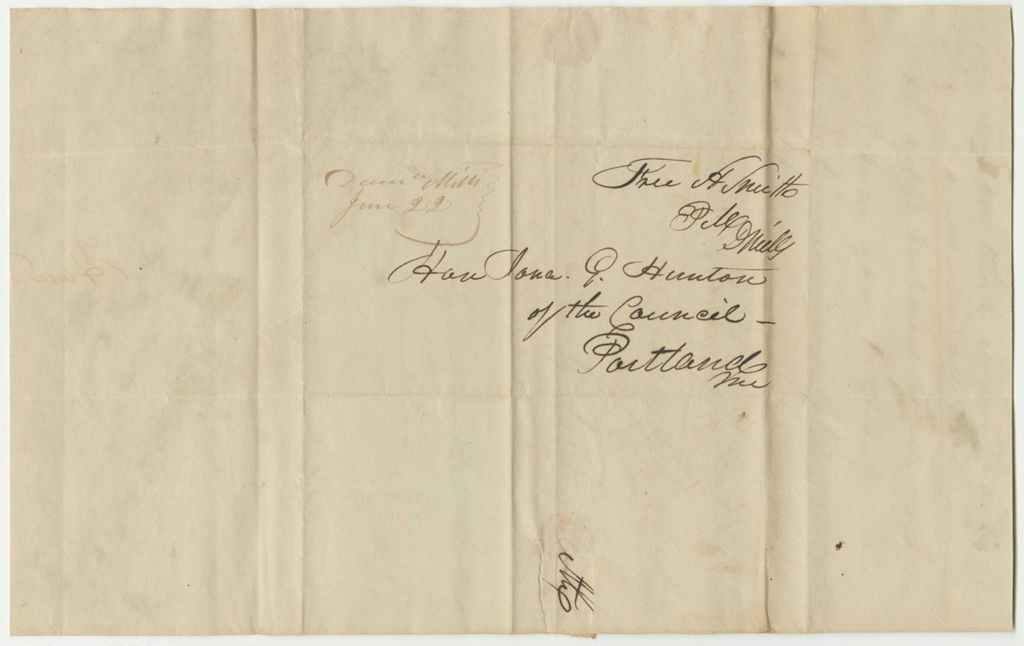 Dam^a Mills
Jun 22
Free A Smith
PM
DMills
Hon Jona. G. Hunton
of the Council —
Portland
Me